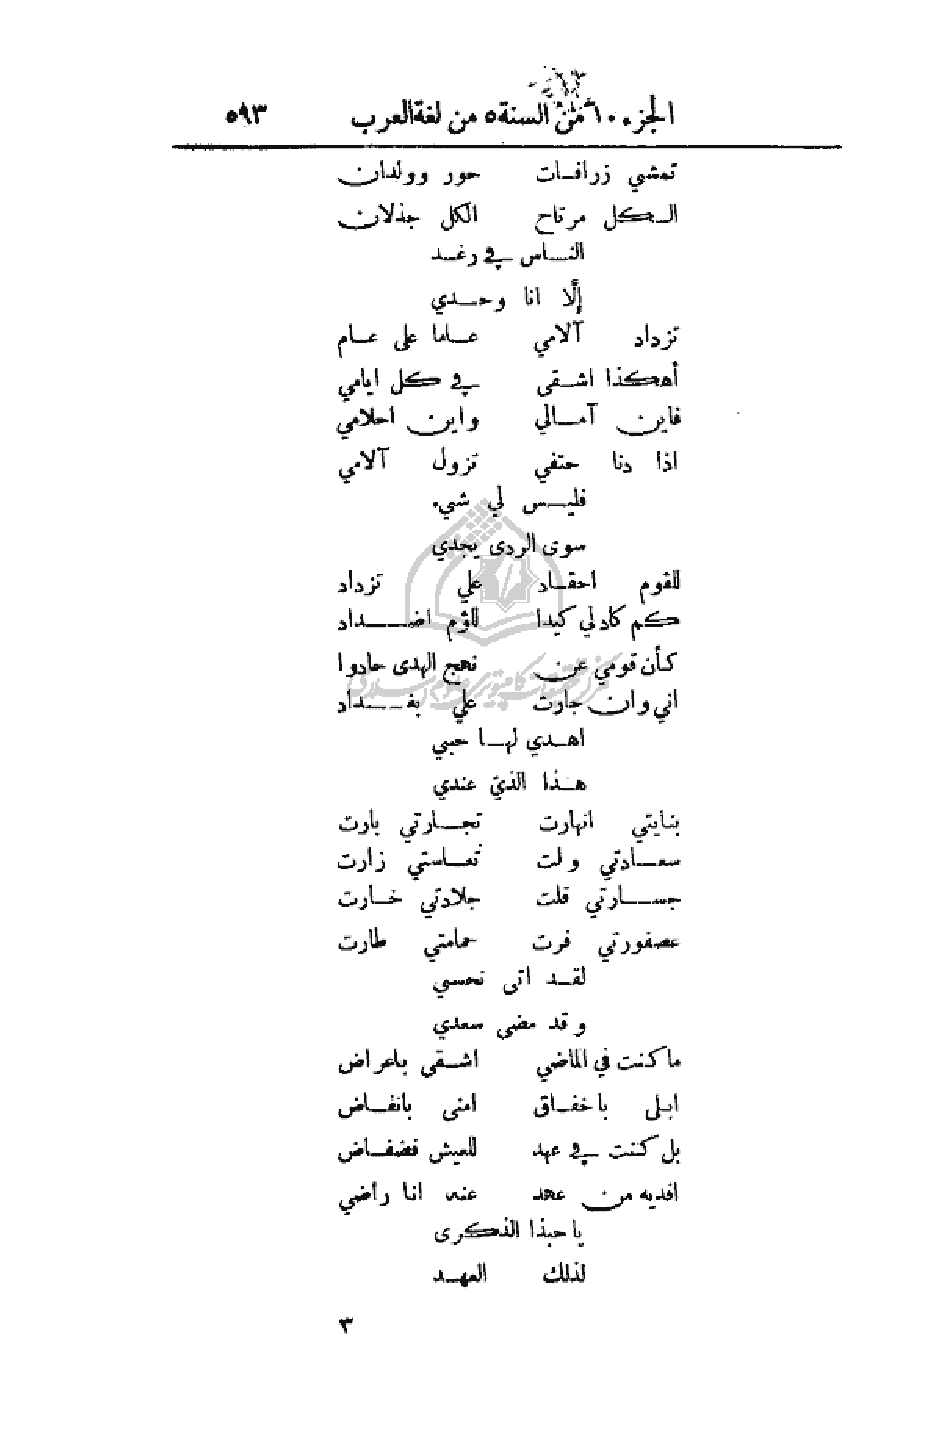 الجزء ١٠ من السنة ٥ من لغة العرب ٥٩٣
تمشي زرافات حور وولدان
الكل مرتاح الكل جذلان
الناس في رغد
إلّا انا وحدي
تزداد آلامي عاما على عام
أهكذا اشقى في كل ايامي
فاين آمالي واين احلامي
اذا دنا حتفي تزول آلامي
فليس لي شيء
سوى الردى يجدي
للقوم احقاد علي تزداد
كم كادلي كيدا للؤم اضداد
كأن قومي عن نهج الهدى حادوا
اني وان جارت علي بغداد
اهدي لها حبي
هذا الذي عندي
بنايتي انهارت تجارتي بارت
سعادتي ولت تعاستي زارت
جسارتي قلت جلادتي خارت
عصفورتي فرت حمامتي طارت
لقد اتى نحسي
وقد مضى سعدي
ما كنت في الماضي اشقى باعراض
ابلى باخفاق امنى بانفاض
بل كنت في عهد للعيش فضفاض
افديه من عهد عنه انا راضي
ياحبذا الذكرى
لذلك العهد
٣